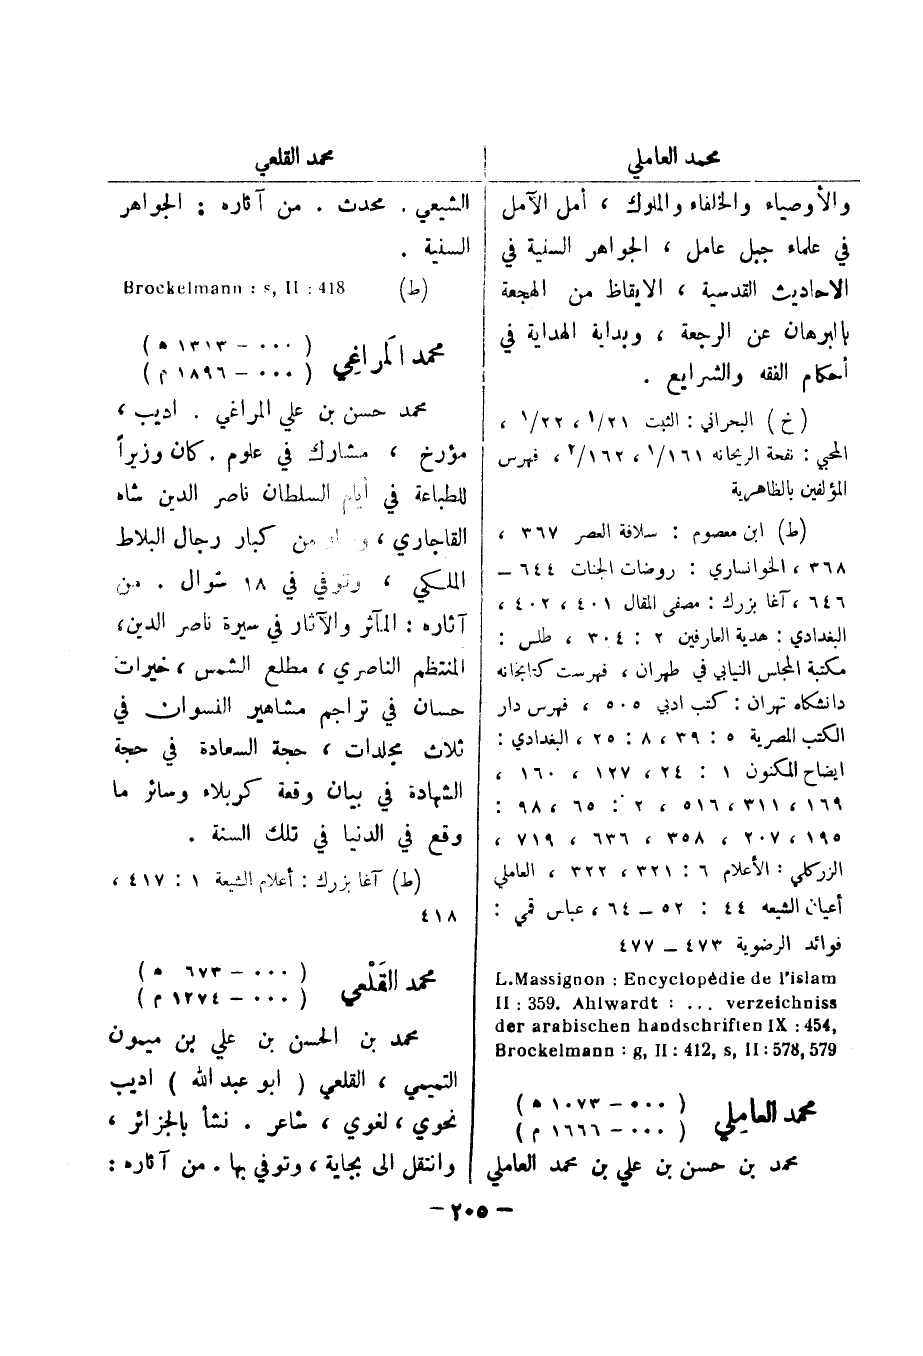 محمد العاملي
والأوصياء والخلفاء والملوك ، أمل الآمل
في علماء جبل عامل ، الجواهر السنية في
الاحاديث القدسية ، الايقاظ من الهجعة
بالبرهان عن الرجعة ، وبداية الهداية في
أحكام الفقه والشرايع .
(خ) البحراني : الثبت ٢١/١ ، ٢٢/١ ،
المحبي : نفحة الريحانه ١٦١/١ ، ١٦٢/٢ ، فهرس
المؤلفين بالظاهرية
(ط) ابن معصوم : سلافة العصر ٣٦٧ ،
٣٦٨ ، الخوانساري : روضات الجنات ٦٤٤ ــ
٦٤٦ ، آغا بزرك : مصفى المقال ٤٠١ ، ٤٠٢ ،
البغدادي : هدية العارفين ٢ : ٣٠٤ ، طلس :
مكتبة المجلس النيابي في طهران ، فهرست كتابخانه
دانشكاه تهران : كتب ادبي ٥٠٥ ، فهرس دار
الكتب المصرية ٥ : ٣٩ ، ٨ : ٢٥ ، البغدادي :
ايضاح المكنون ١ : ٢٤ ، ١٢٧ ، ١٦٠ ،
١٦٩ ، ٣١١ ، ٥١٦ ، ٢ : ٦٥ ، ٩٨ :
١٩٥ ، ٢٠٧ ، ٣٥٨ ، ٦٣٦ ، ٧١٩ ،
الزركلي : الأعلام ٦ : ٣٢١ ، ٣٢٢ ، العاملي
أعيان الشيعه ٤٤ : ٥٢ ــ ٦٤ ، عباس قمي :
فوائد الرضوية ٤٧٣ ــ ٤٧٧
L.Massignon : Encyclopédie de l'islam
II : 359. Ahlwardt : ... verzeichniss
der arabischen handschriften IX : 454,
Brockelmann : g, II : 412, s, II : 578, 579
محمد العامِلي ( ٠٠٠ – ١٠٧٣ ه )
( ٠٠٠ – ١٦٦٦ م )
محمد بن حسن بن علي بن محمد العاملي
محمد القلعي
الشيعي . محدث . من آثاره : الجواهر
السنية .
(ط) Brockelmann : s, II : 418
محمد المَراغِي ( ٠٠٠ – ١٣١٣ ه )
( ٠٠٠ – ١٨٩٦ م )
محمد حسن بن علي المراغي . اديب ،
مؤرخ ، مشارك في علوم . كان وزيراً
للطباعة في أيام السلطان ناصر الدين شاه
القاجاري ، من كبار رجال البلاط
الملكي ، وتوفي في ١٨ شوال . من
آثاره : المآثر والآثار في سيرة ناصر الدين ،
المنتظم الناصري ، مطلع الشمس ، خيرات
حسان في تراجم مشاهير النسوان في
ثلاث مجلدات ، حجة السعادة في حجة
الشهادة في بيان وقعة كربلاء وسائر ما
وقع في الدنيا في تلك السنة .
(ط) آغا بزرك : أعلام الشيعة ١ : ٤١٧ ،
٤١٨
محمد القَلْعي ( ٠٠٠ – ٦٧٣ ه )
( ٠٠٠ – ١٢٧٤ م )
محمد بن الحسن بن علي بن ميمون
التميمي ، القلعي ( ابو عبد الله ) اديب
نحوي ، لغوي ، شاعر . نشأ بالجزائر ،
وانتقل الى بجاية ، وتوفي بها . من آثاره :
– ٢٠٥ –